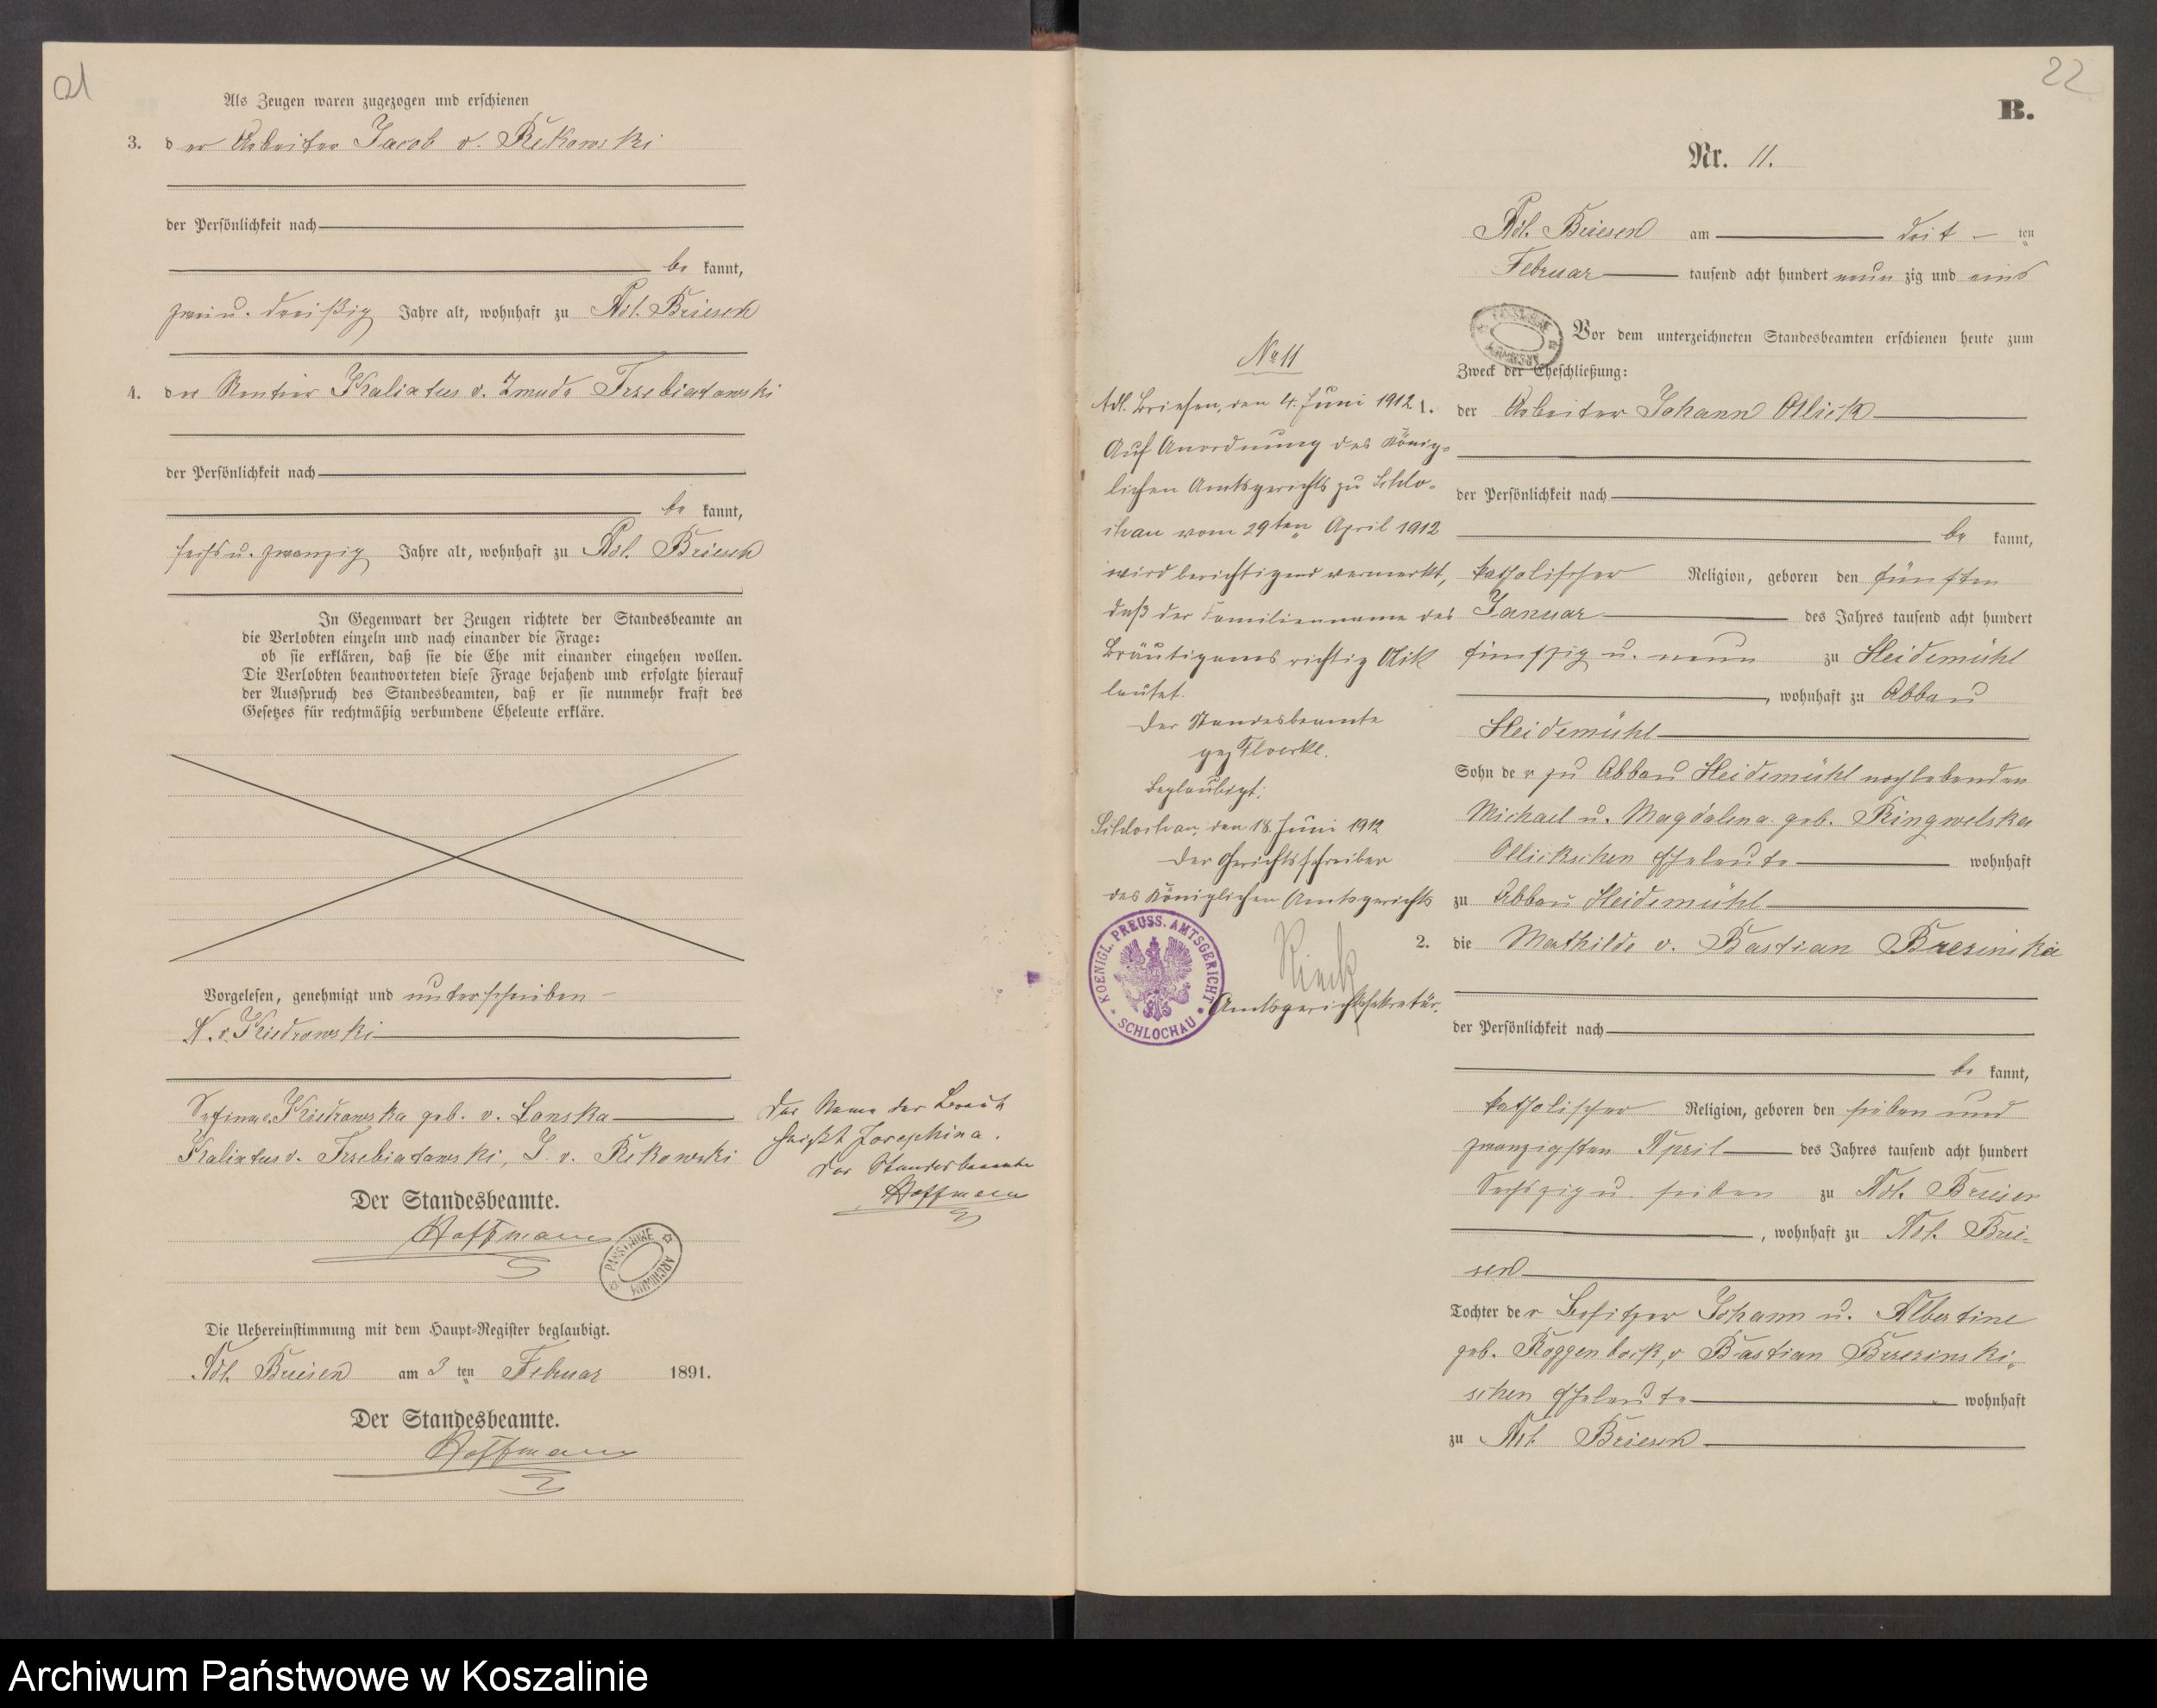 21
Als Zeugen waren zugezogen und erschienen
3. der Arbeiter Jacob v. Rekowski
der Persönlichkeit nach
be kannt,
zwei u. dreißig Jahre alt, wohnhaft zu Adl. Briesen
4. der Rentier Kalixtus v. Zmuda Trzebiatowski
der Persönlichkeit nach
be kannt,
sechs u. zwanzig Jahre alt, wohnhaft zu Adl. Briesen
In Gegenwart der Zeugen richtete der Standesbeamte an
die Verlobten einzeln und nach einander die Frage:
ob sie erklären, daß sie die Ehe mit einander eingehen wollen.
Die Verlobten beantworteten diese Frage bejahend und erfolgte hierauf
der Ausspruch des Standesbeamten, daß er sie nunmehr kraft des
Gesetzes für rechtmäßig verbundene Eheleute erkläre.
Vorgelesen, genehmigt und unterschrieben
A. v. Kiedrowski
v. Kiedrowska geb. v. Lonska
Kalixtus v. Trzebiatowski, J. v. Rekowski
Der Name der Braut
heißt Josephina.
Der Standesbeamte
Hoffmann
Der Standesbeamte.
Hoffmann
PAŃSTWOWE ARCHIWUM
Die Uebereinstimmung mit dem Haupt-Register beglaubigt.
Adl. Briesen am 3 ten Februar 1891.
Der Standesbeamte.
Hoffmann
22
B.
Nr. 11.
Adl. Briesen am drit ten
Februar tausend acht hundert neun zig und eins
Vor dem unterzeichneten Standesbeamten erschienen heute zum
Zweck der Eheschließung:
1. der Arbeiter Johann Ollick
der Persönlichkeit nach
be kannt,
katholischer Religion, geboren den fünften
Januar des Jahres tausend acht hundert
fünfzig u. neun zu Heidemühl
, wohnhaft zu Abbau
Heidemühl
Sohn der zu Abbau Heidemühl noch lebenden
Michael u. Magdalena geb. Ringwelska
Ollickschen Eheleute wohnhaft
zu Abbau Heidemühl
2. die Mathilde v. Bastian Brezinska
der Persönlichkeit nach
be kannt,
katholischer Religion, geboren den sieben und
zwanzigsten April des Jahres tausend acht hundert
Sechszig u. sieben zu Adl. Briesen
, wohnhaft zu Adl. Brie-
sen
Tochter der Besitzer Johann u. Albertine
geb. Roggenbock, v Bastian Brzezinski-
schen Eheleute wohnhaft
zu Adl. Briesen
No 11
Adl. Briesen, den 4. Juni 1912
Auf Anordnung des König-
lichen Amtsgerichts zu Schlo-
chau vom 29ten April 1912
wird berichtigend vermerkt,
daß der Familienname des
Bräutigams richtig Olik
lautet.
Der Standesbeamte
gez Floerke.
Beglaubigt:
Schlochau, den 18. Juni 1912
Der Gerichtsschreiber
des Königlichen Amtsgerichts
Rieck
Amtsgerichtssekretär.
KOENIGL. PREUSS. AMTSGERICHT
SCHLOCHAU
Archiwum Państwowe w Koszalinie